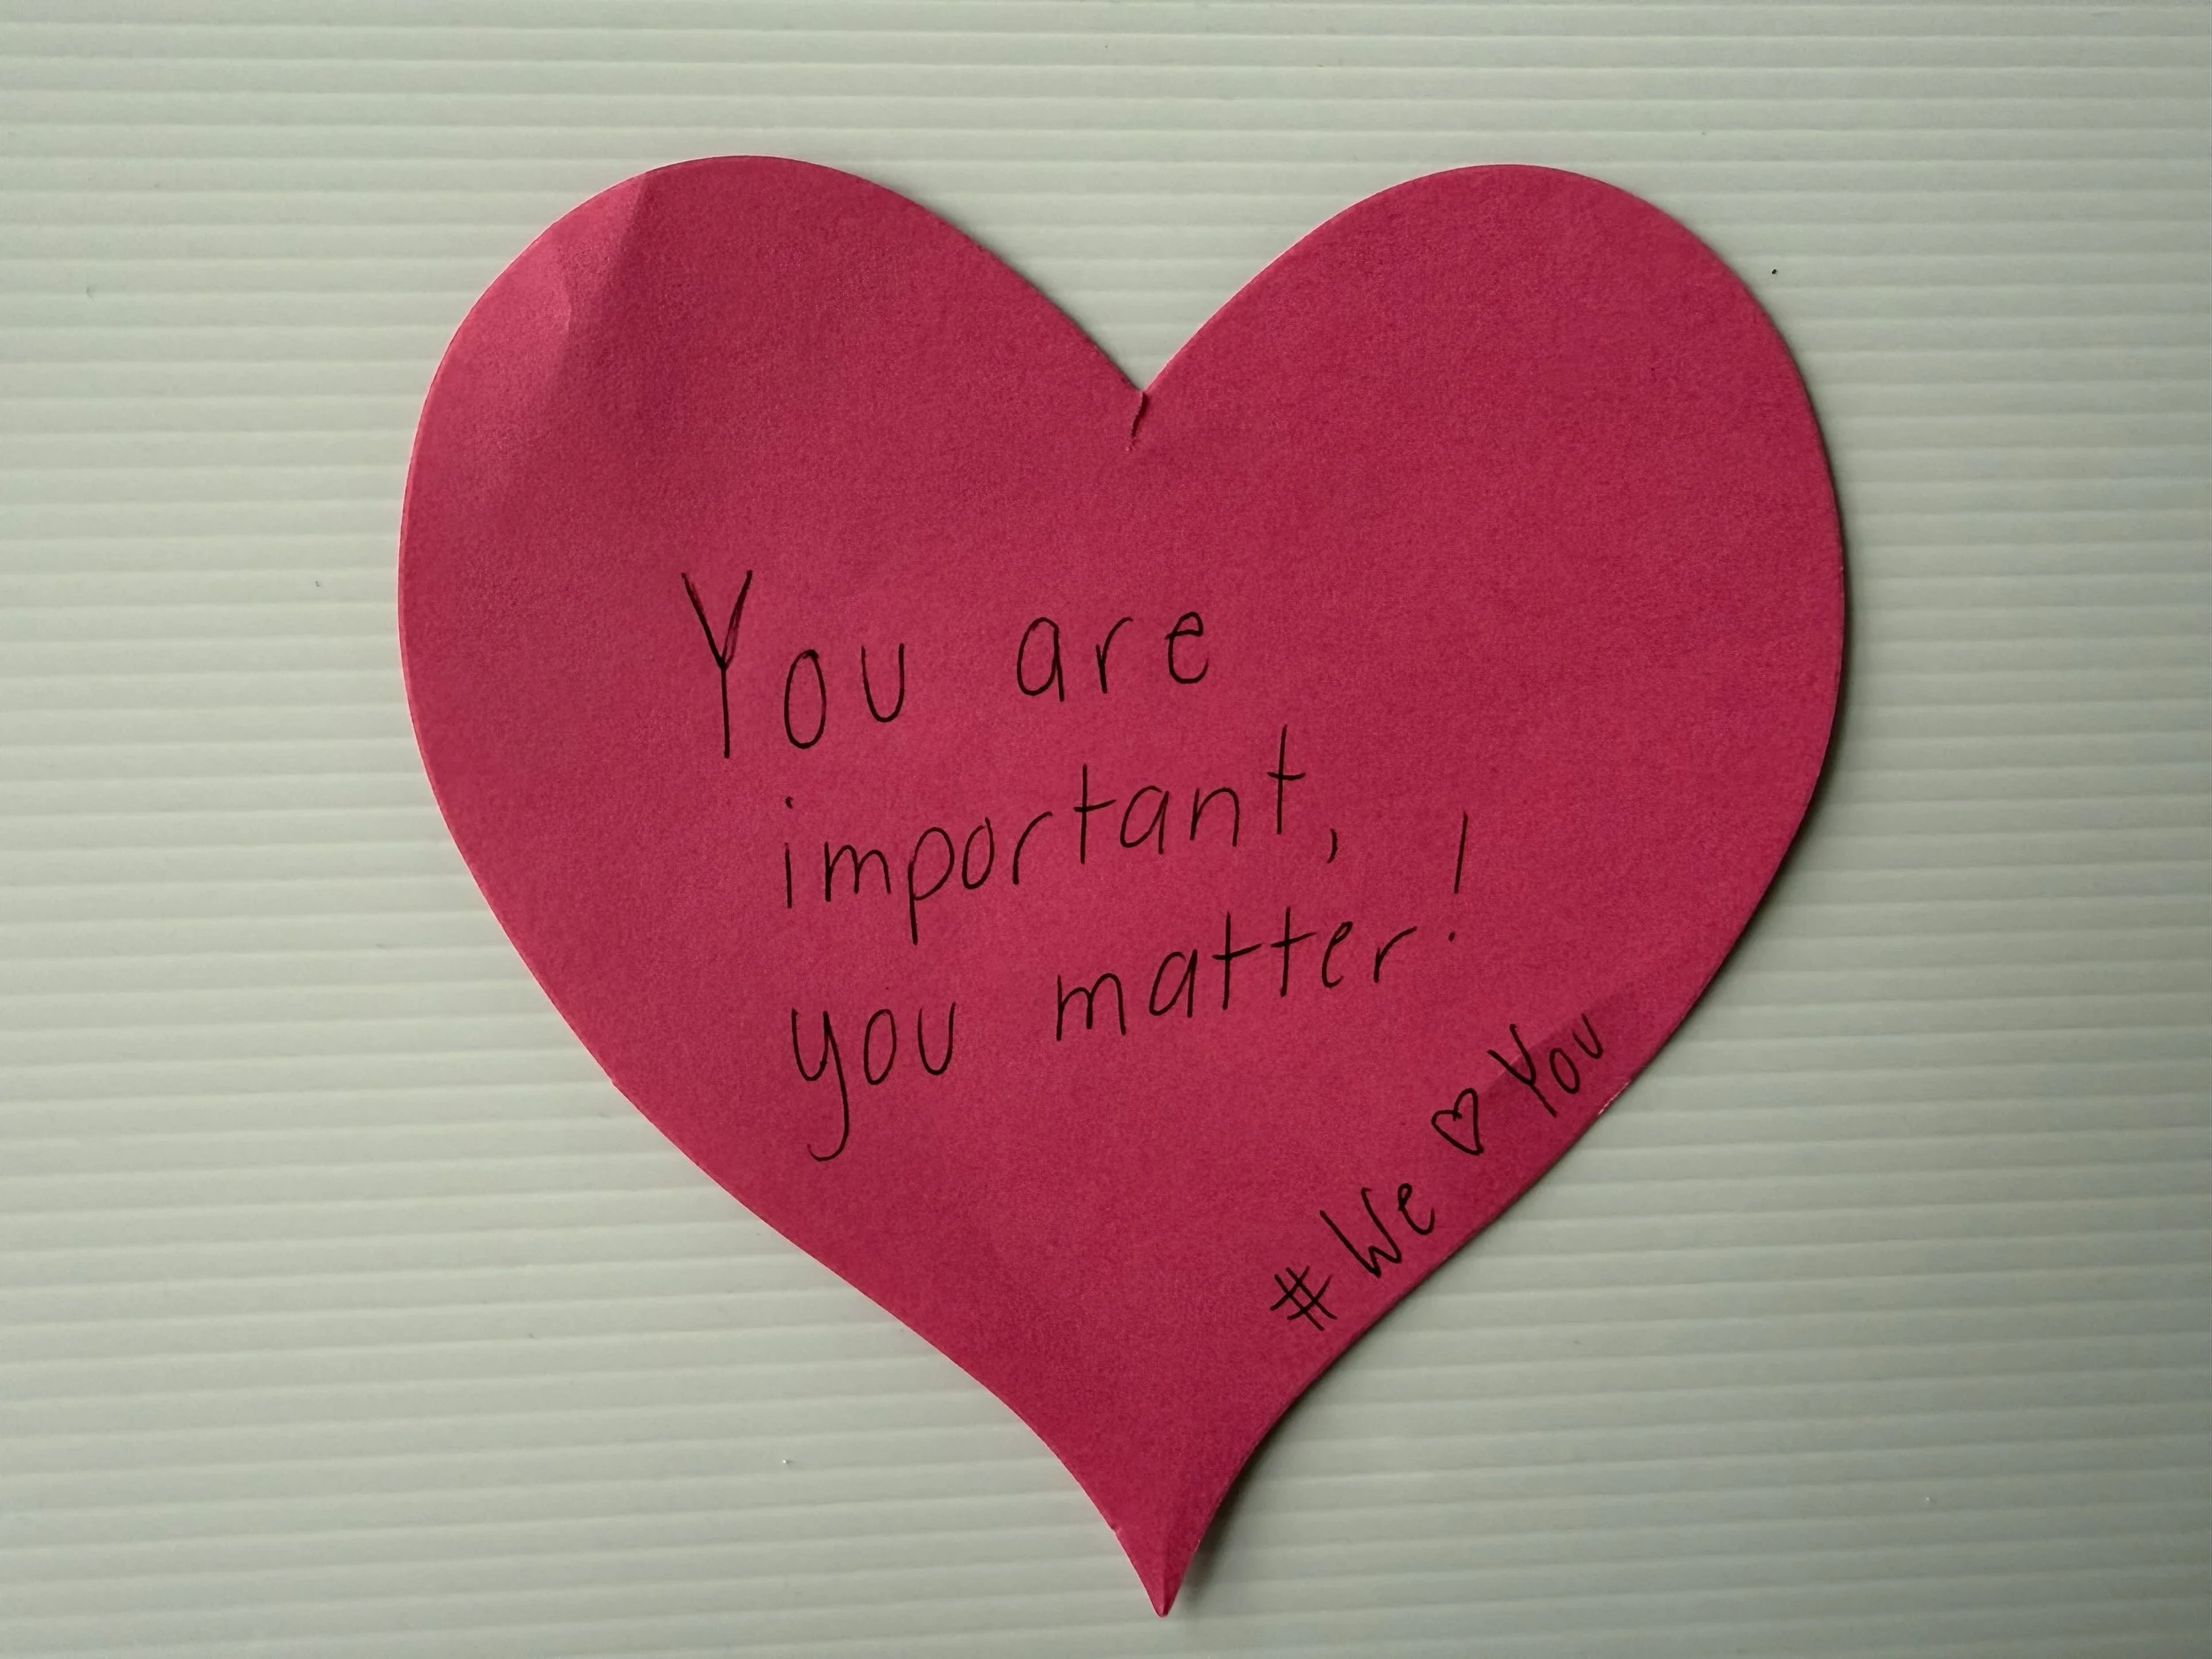 You are
important,
you matter!
# We ♡ You